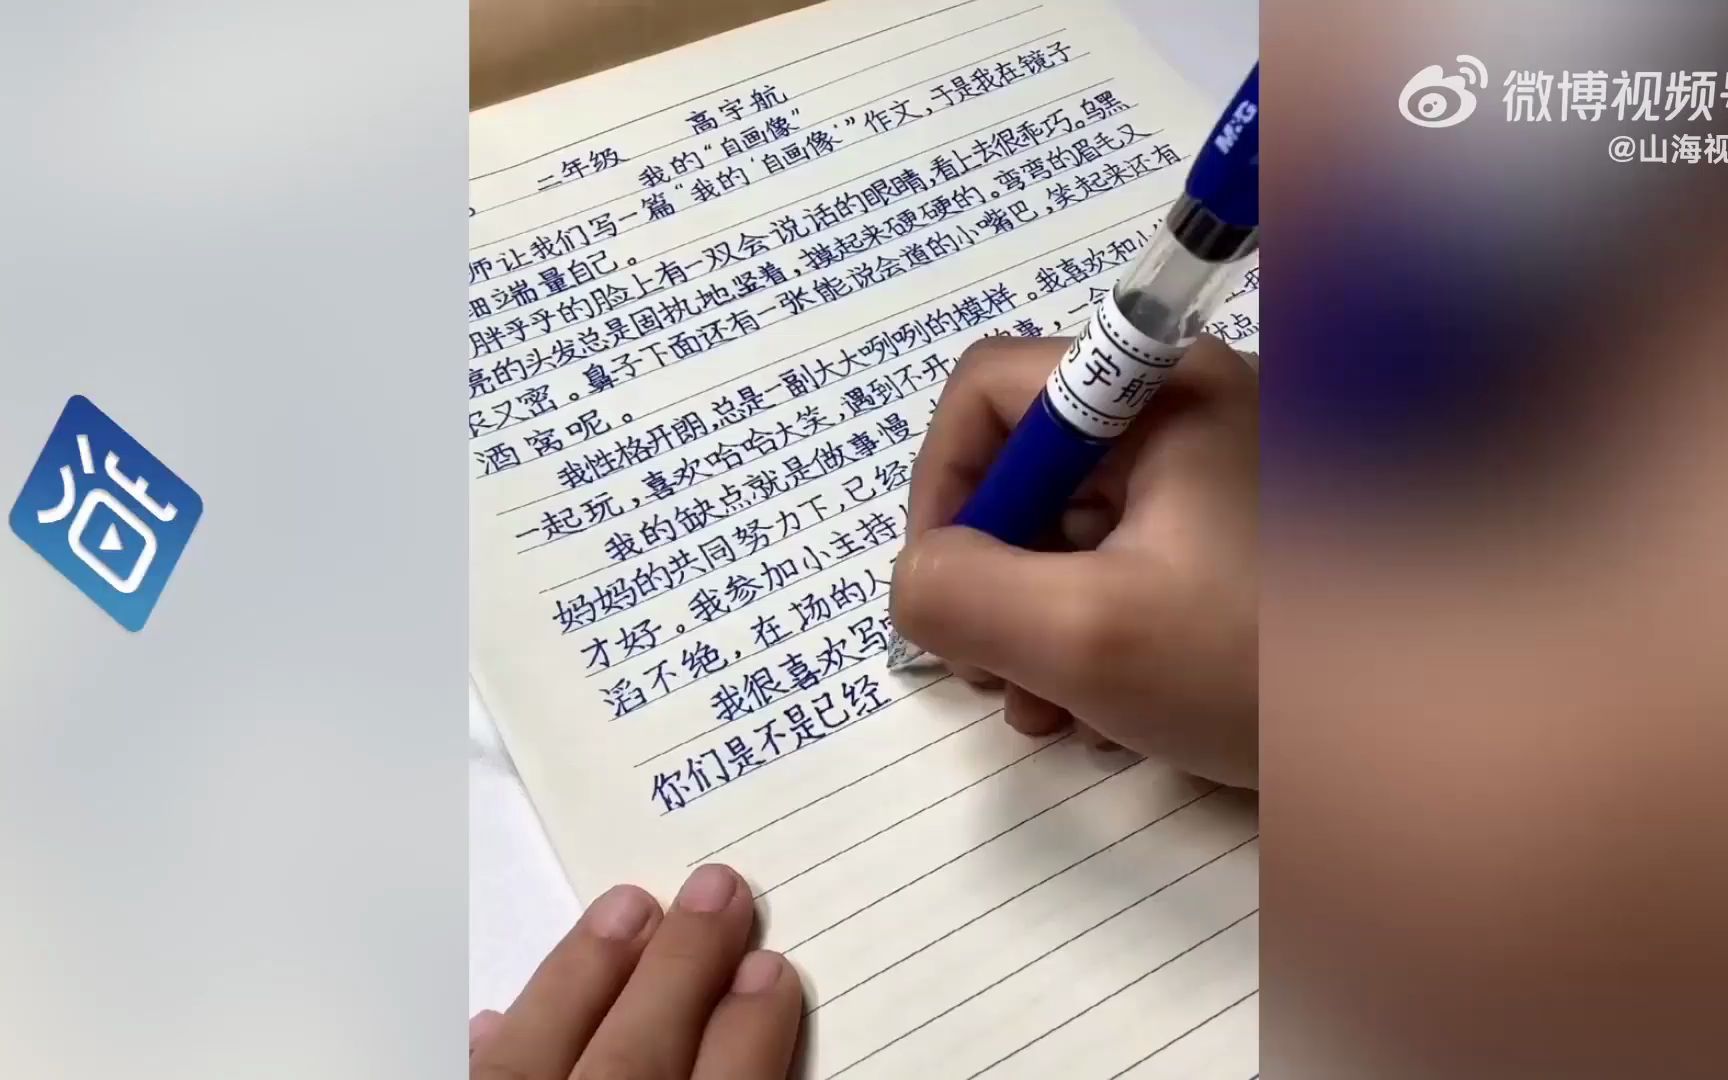 微博视频号
@山海视
高宇航
二年级
我的“自画像”
师让我们写一篇“我的‘自画像’”作文，于是我在镜子
细端量自己。
胖乎乎的脸上有一双会说话的眼睛，看上去很乖巧。乌黑
亮的头发总是固执地竖着，摸起来硬硬的。弯弯的眉毛又
农又密。鼻子下面还有一张能说会道的小嘴巴，笑起来还有
酒窝呢。
我性格开朗，总是一副大大咧咧的模样。我喜欢和小
一起玩，喜欢哈哈大笑，遇到不开 事，一会
我的缺点就是做事慢 优点
妈妈的共同努力下，已经
才好。我参加小主持
滔不绝，在场的人
我很喜欢写
你们是不是已经
M&G
高宇航